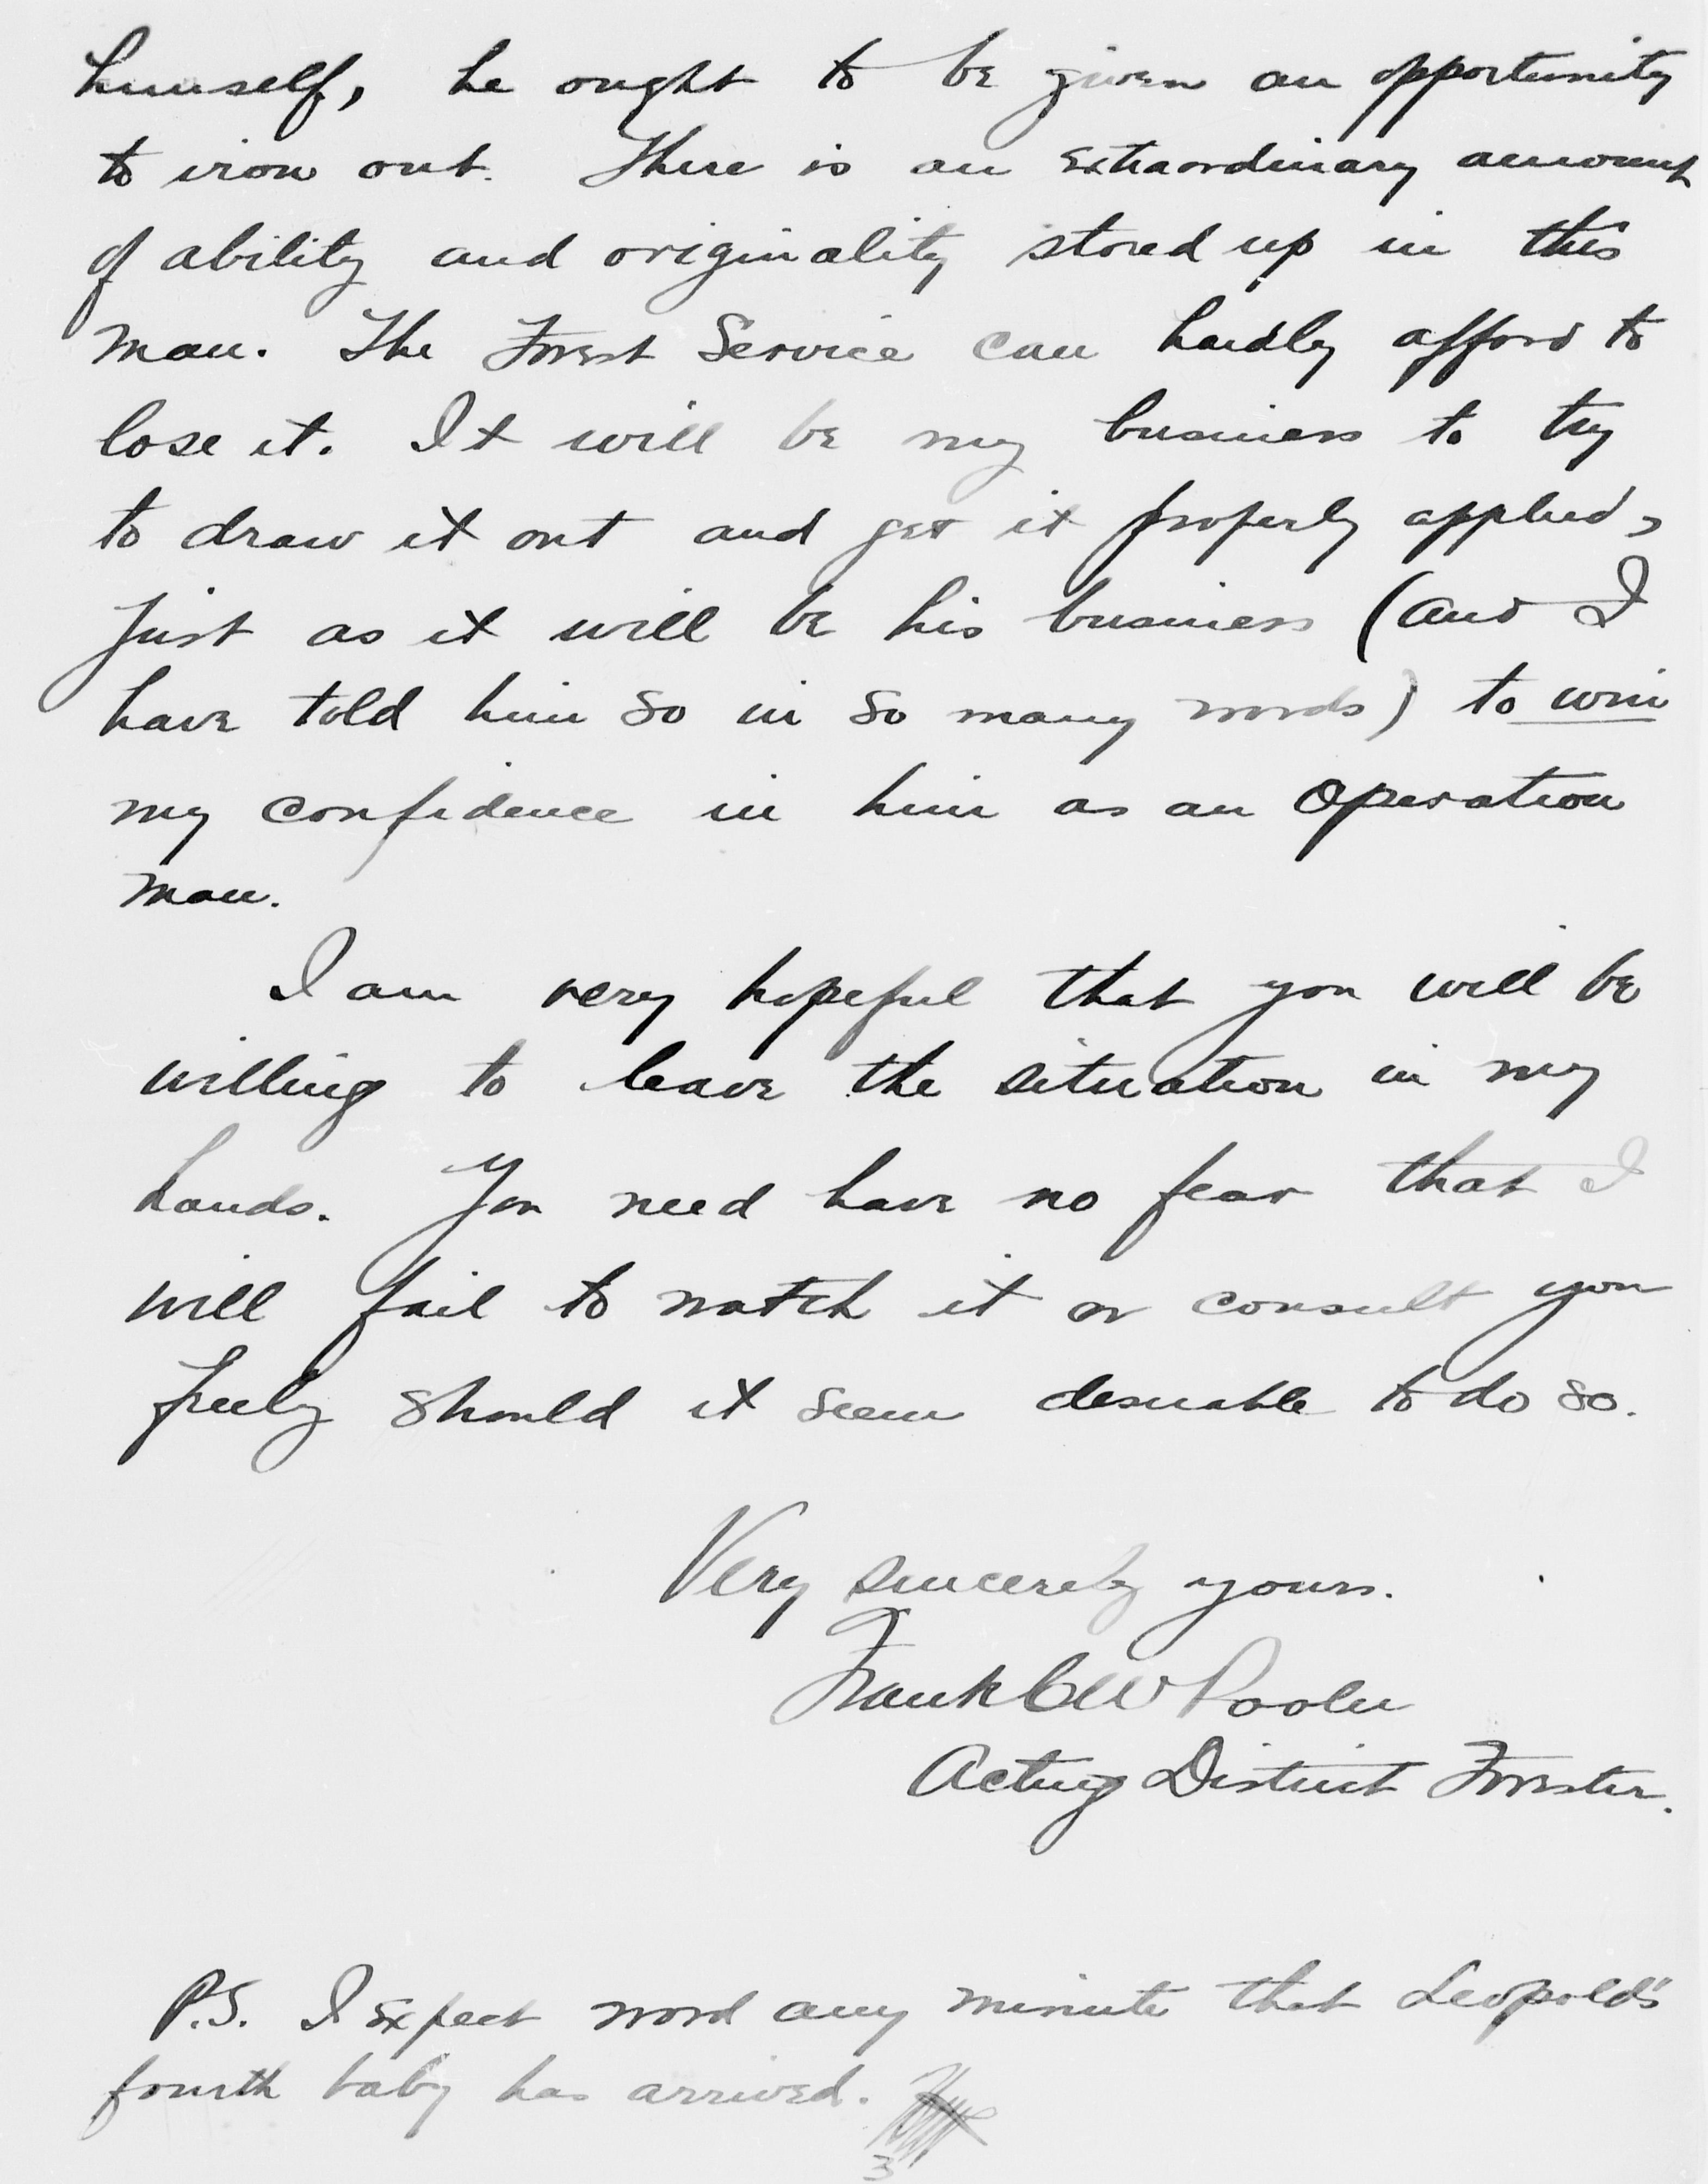 himself, he ought to be given an opportunity
to iron out. There is an extraordinary amount
of ability and originality stored up in this
man. The Forest Service can hardly afford to
lose it. It will be my business to try
to draw it out and get it properly applied,
just as it will be his business (and I
have told him so in so many words) to win
my confidence in him as an Operation
man.
I am very hopeful that you will be
willing to leave the situation in my
hands. You need have no fear that I
will fail to watch it or consult you
freely should it seem desirable to do so.
Very sincerely yours.
Frank C W Pooler
Acting District Forester.
P.S. I expect word any minute that Leopold's
fourth baby has arrived.
3